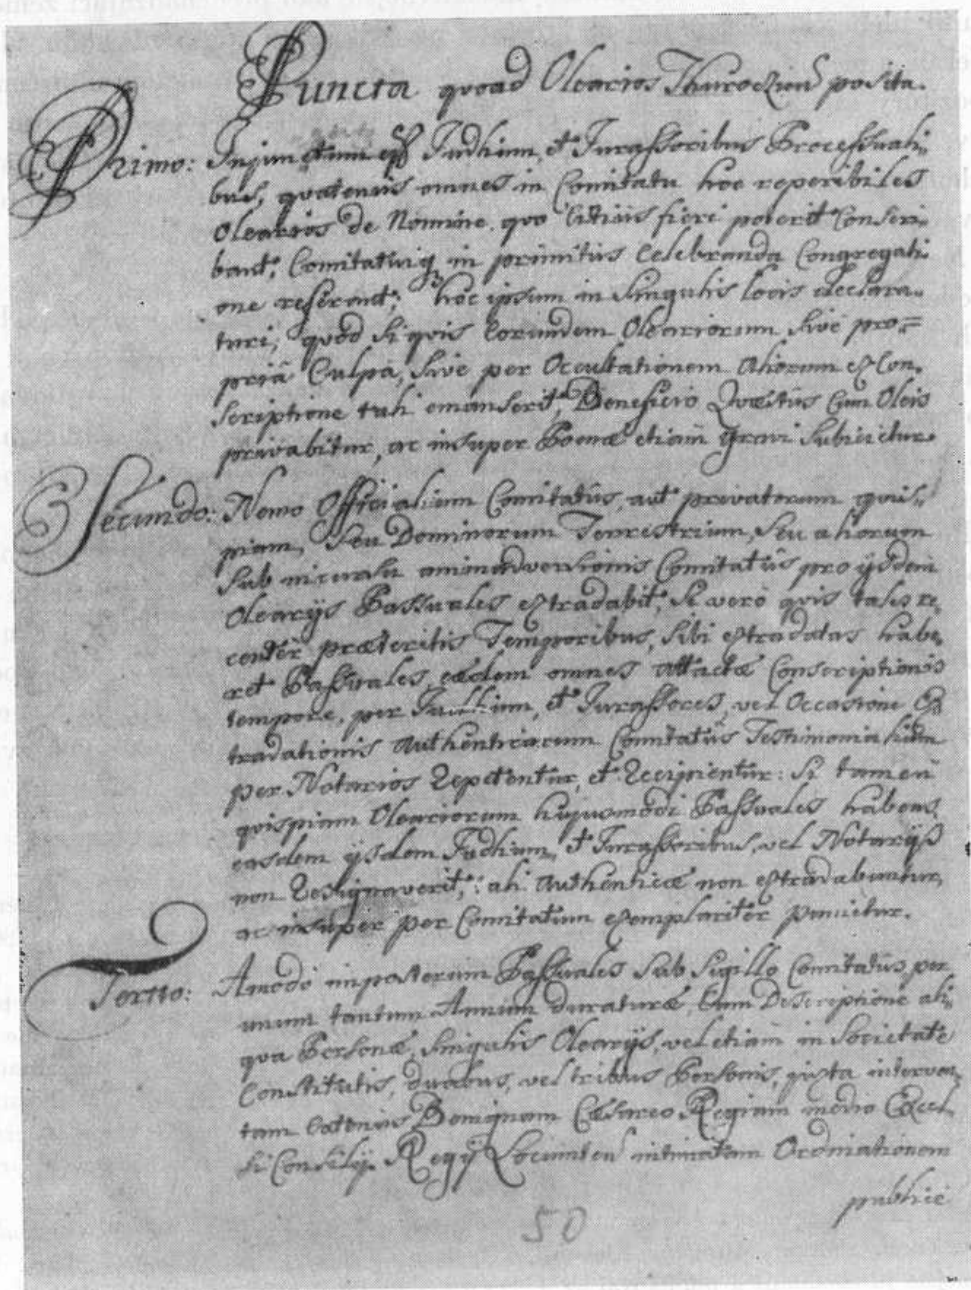 Puncta quoad Olearios Thuroczien posita.
Primo: Injunctum Judlium, et Jurassoribus Processuali-
bus, quatenus omnes in Comitatu hoc reperibiles
Olearios de Nomine quo citius fieri poterit Conscri-
bant, Comitatuique in primitus celebranda Congregati-
one referant; hoc ipsum in singulis locis declara-
turi, quod si quis eorundem Oleariorum sive pro-
priâ Culpâ, sive per Occultationem Aliorum ex Con-
scriptione tali emanserit, Beneficio Quæstûs cum Oleis
privabitur, ac insuper Poenæ etiam gravi subicietur.
Secundo: Nemo Officialium Comitatûs, aut privatorum quis-
piam, seu Dominorum Terrestrium, seu aliorum
sub incursu animadversionis Comitatûs pro ijsdem
Olearijs Passuales extradabit, si vero quis tales re-
center præteritis Temporibus, sibi extradatas habe-
ret Passuales, eædem omnes attactæ Conscriptionis
tempore, per Judlium, et Jurassores, vel Occasione Ex-
tradationis Authenticarum Comitatûs Testimonialium
per Notarios repetentur, et recipientur: si tamen
quispiam Oleariorum hujusmodi Passuales habens,
easdem ijsdem Judlium, et Jurassoribus, vel Notarijs
non resignaverit, ali Authenticæ non extradabuntur,
ac insuper per Comitatum exemplariter punietur.
Tertio: Amodo imposterum Passuales sub Sigillo Comitatûs, per
unum tantum Annum duraturæ, cum Descriptione ali-
qua Personæ, singulis Olearijs, vel etiam in Societate
Constitutis, duabus, vel tribus Personis, juxta interven-
tam eatenus Benignam Cæsareo Regiam medio Excel-
si Consilij Regij Locumten intimatam Ordinationem
publice
50